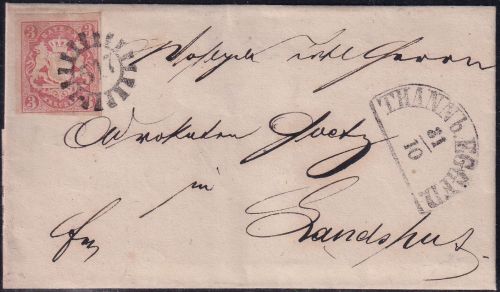 BAYERN
3 3
3 3
THANN b. EGGENF.
31
10
Herrn
Advokaten Goetz
in
fr Landshut